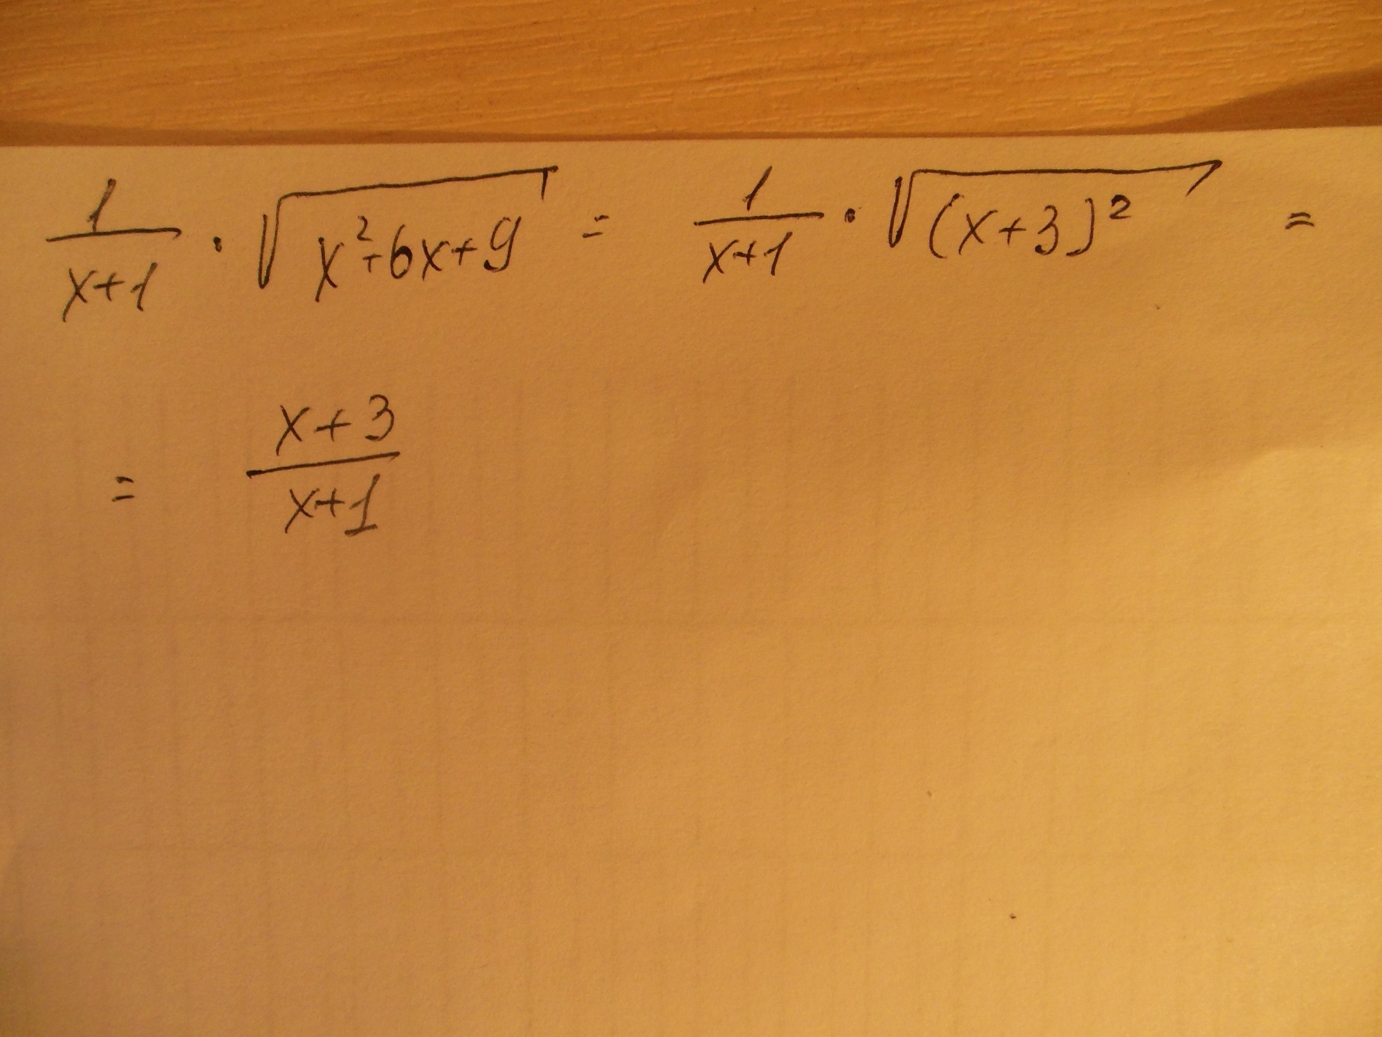 1/(x+1) · √(x²+6x+9) = 1/(x+1) · √((x+3)²) =
= (x+3)/(x+1)